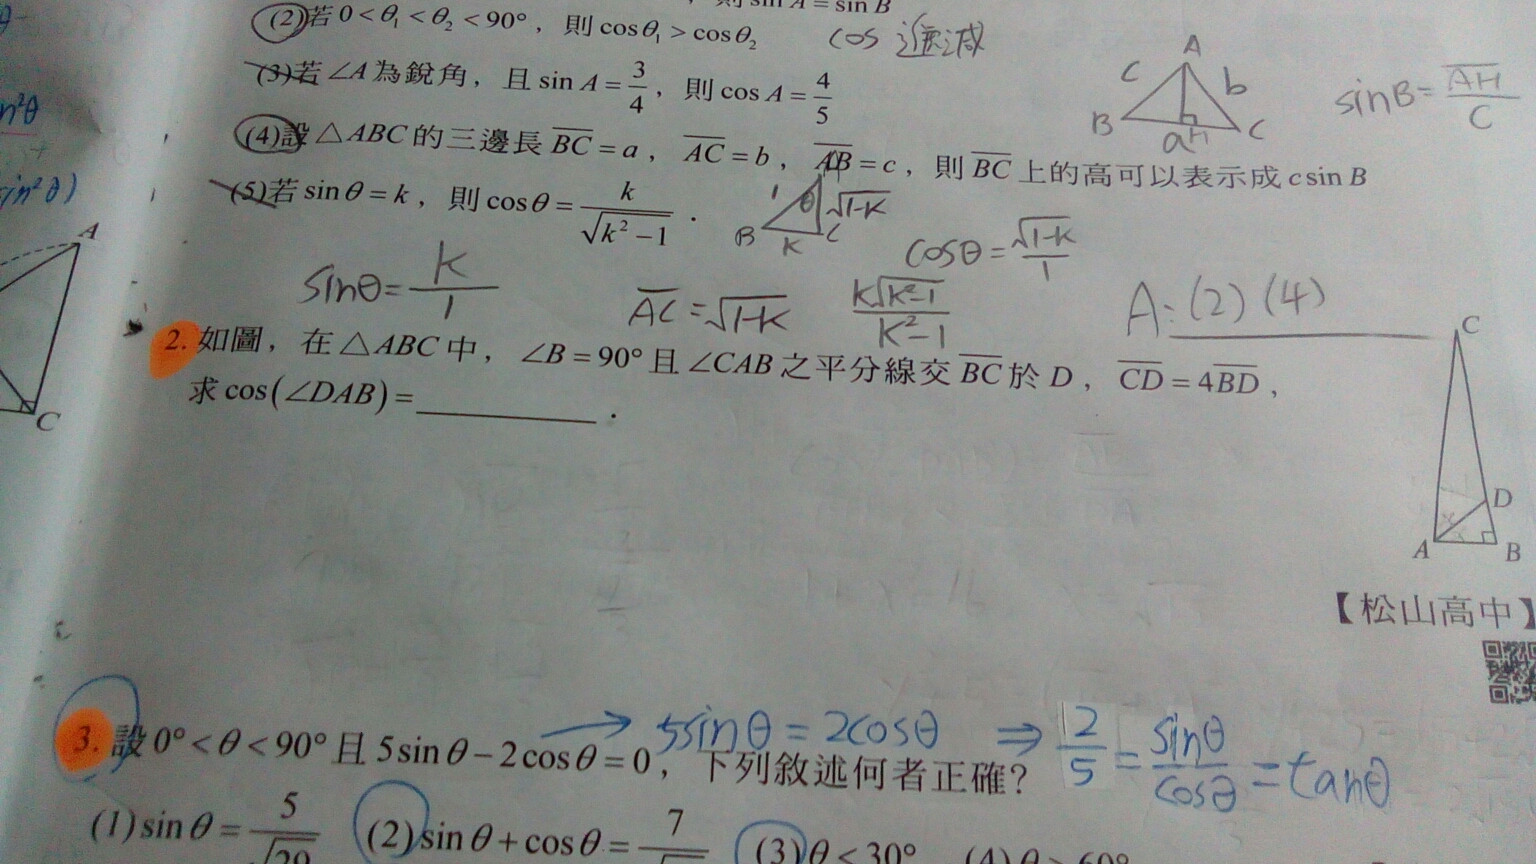 則 sin A = sin B
(2)若 0 < θ₁ < θ₂ < 90°，則 cosθ₁ > cosθ₂ cos 遞減
(3)若 ∠A 為銳角，且 sin A = 3/4，則 cos A = 4/5
A
c b
B a H C
sinB = AH/C
(4)設 △ABC 的三邊長 BC = a，AC = b，AB = c，則 BC 上的高可以表示成 c sin B
(5)若 sinθ = k，則 cosθ = k/√(k²−1)．
1 θ √1-k
B k C
cosθ = √1-k/1
sinθ = k/1
AC = √1-k
k√k²-1/k²-1
A: (2) (4)
2. 如圖，在 △ABC 中，∠B = 90° 且 ∠CAB 之平分線交 BC 於 D，CD = 4BD，
求 cos(∠DAB) = ．
C
D
A B
【松山高中】
3. 設 0° < θ < 90° 且 5 sin θ − 2 cos θ = 0，下列敘述何者正確？
→ 5sinθ = 2cosθ ⇒ 2/5 = sinθ/cosθ = tanθ
(1) sin θ = 5/√29 (2) sin θ + cos θ = 7/√ (3) θ < 30° (4) θ > 60°
n²θ
sin²θ)
A
C